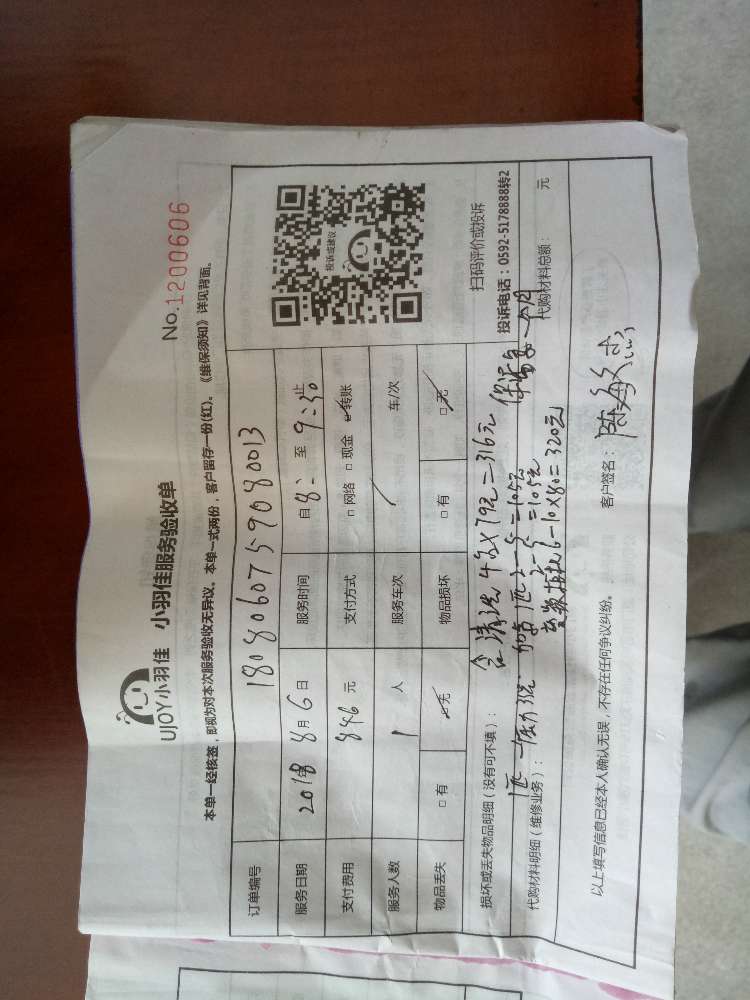 No.1200606
UJOY小羽佳 小羽佳服务验收单
本单一经核签，即视为对本次服务验收无异议。本单一式两份，客户留存一份(红)。《维保须知》详见背面。
订单编号 180806075908 0013
服务日期 2018年 8月 6日 服务时间 自 8: 至 9:30 止
支付费用 846 元 支付方式 □ 网络 □ 现金 □ 转账
服务人数 1 人 服务车次 / 车/次
物品丢失 □ 有 □ 无 物品损坏 □ 有 □ 无
投诉或建议
扫码评价或投诉
投诉电话：0592-5178888转2
损坏或丢失物品明细（没有可不填）： 清洗 4台×79元=316元
代购材料明细（维修业务）： 代购材料总额： 元
1匹 =105元
=105元
10×80=320元
以上填写信息已经本人确认无误，不存在任何争议纠纷。 客户签名：